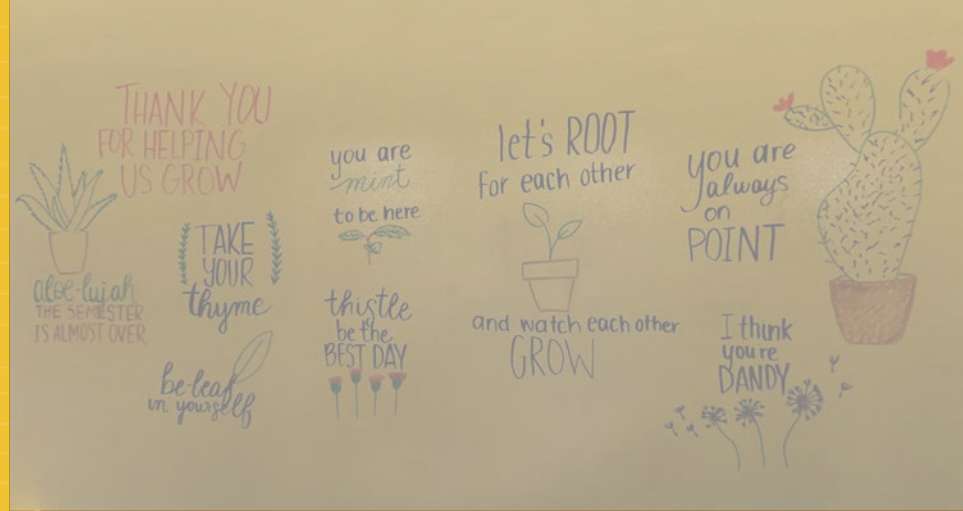 THANK YOU
FOR HELPING
US GROW
aloe-lujah
THE SEMESTER
IS ALMOST OVER
TAKE
YOUR
thyme
be-leaf
in yourself
you are
mint
to be here
thistle
be the
BEST DAY
let's ROOT
for each other
and watch each other
GROW
you are
always
on
POINT
I think
you're
DANDY